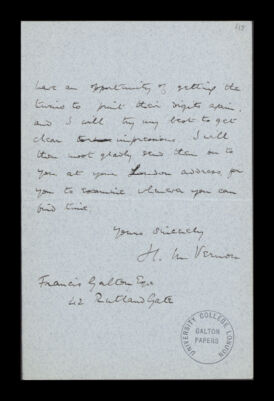 have an opportunity of getting the
twins to print their digits again,
and I will try my best to get
clear impressions. I will
then most gladly send them on to
you at your London address, for
you to examine whenever you can
find time.
Yours sincerely
H. M. Vernon
Francis Galton Esq.
42 Rutland Gate
UNIVERSITY COLLEGE LONDON
GALTON
PAPERS